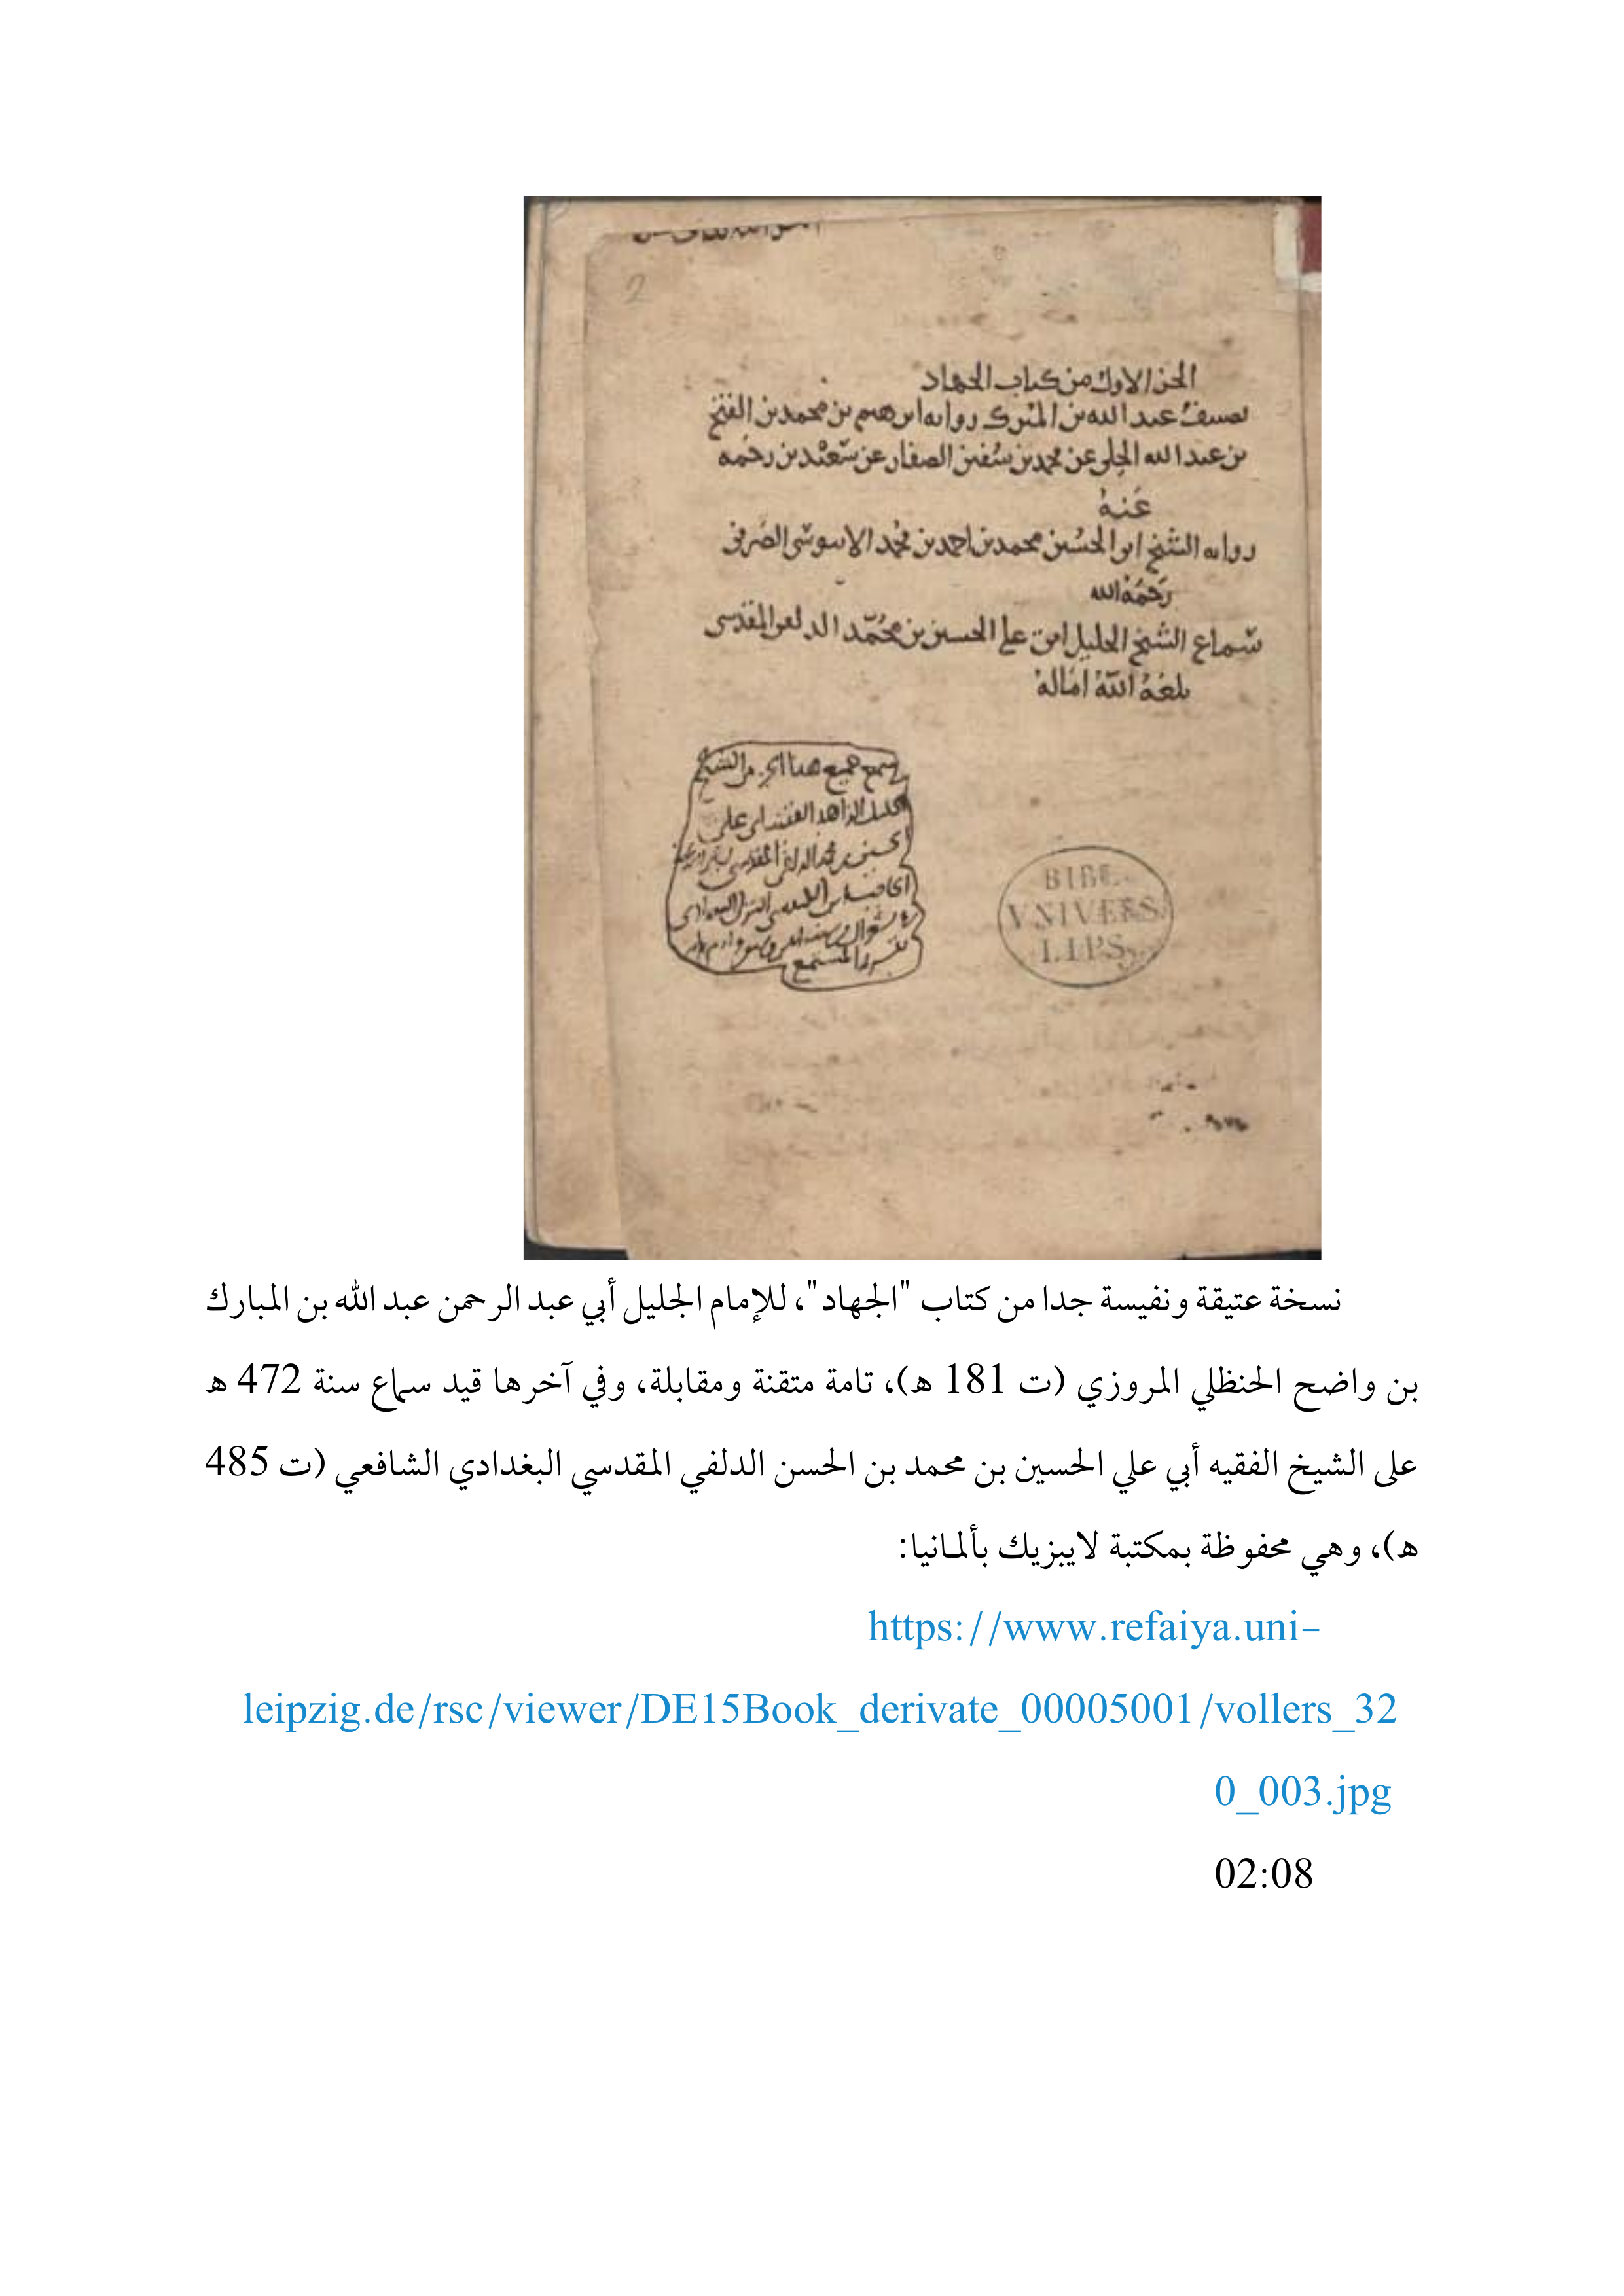 2
الجزء الاول من كتاب الجهاد
تصنيف عبد الله بن المبرك رواية ابرهيم بن محمد بن الفتح
بن عبد الله الجلي عن محمد بن سفين الصفار عن سعيد بن رحمه
عنه
رواية الشيخ ابو الحسين محمد بن احمد بن محمد الابنوسي الصيرفي
رحمه الله
سماع الشيخ الجليل ابي علي الحسين بن محمد الدلفي المقدسي
بلغه الله اماله
سمع جميع هذا الجزء من الشيخ
الجليل الزاهد ابي علي
الحسين بن محمد الدلفي المقدسي
BIBL.
VNIVERS.
LIPS.
نسخة عتيقة ونفيسة جدا من كتاب "الجهاد"، للإمام الجليل أبي عبد الرحمن عبد الله بن المبارك
بن واضح الحنظلي المروزي (ت 181 ه)، تامة متقنة ومقابلة، وفي آخرها قيد سماع سنة 472 ه
على الشيخ الفقيه أبي علي الحسين بن محمد بن الحسن الدلفي المقدسي البغدادي الشافعي (ت 485
ه)، وهي محفوظة بمكتبة لايبزيك بألمانيا:
https://www.refaiya.uni-
leipzig.de/rsc/viewer/DE15Book_derivate_00005001/vollers_32
0_003.jpg
02:08